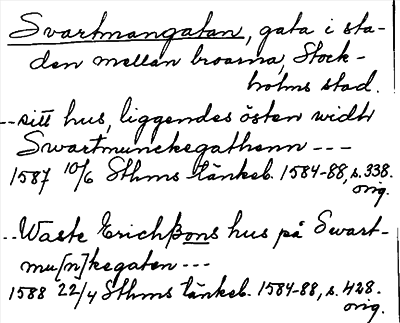 Svartmangatan, gata i sta-
den mellan broarna, Stock-
holms stad.
--sitt hus, liggendes östen widh
Swartmunckegathenn ---
1587 10/6 Sthms tänkeb. 1584-88, s. 338.
orig.
..Waste Erichßons hus på Swart-
mu[n]kegaten ---
1588 22/4 Sthms tänkeb. 1584-88, s. 428.
orig.